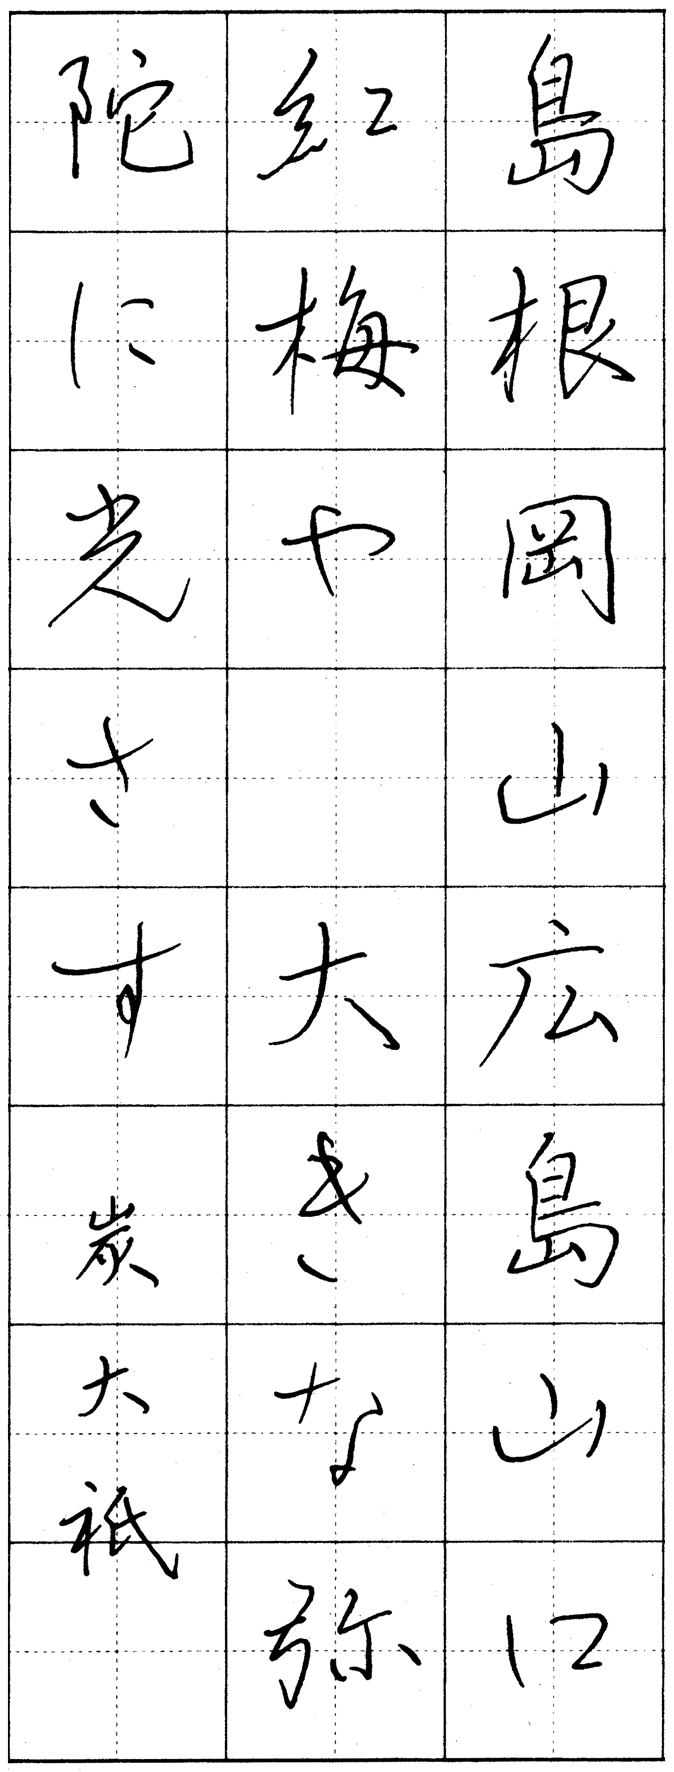 島根岡山広島山口
紅梅や 大きな弥
陀に光さす 炭大祇